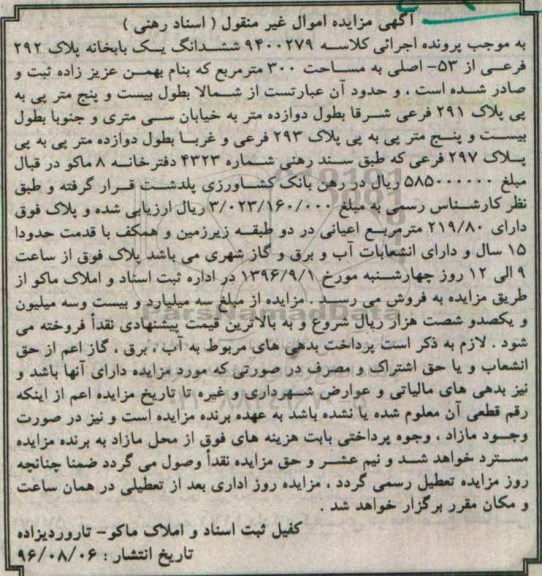 آگهی مزایده اموال غیر منقول ( اسناد رهنی )
به موجب پرونده اجرائی کلاسه ۹۴۰۰۲۷۹ ششدانگ یک بابخانه پلاک ۲۹۲
فرعی از ۵۳- اصلی به مساحت ۳۰۰ مترمربع که بنام بهمن عزیز زاده ثبت و
صادر شده است ، و حدود آن عبارتست از شمالا بطول بیست و پنج متر پی به
پی پلاک ۲۹۱ فرعی شرقا بطول دوازده متر به خیابان سی متری و جنوبا بطول
بیست و پنج متر پی به پی پلاک ۲۹۳ فرعی و غربا بطول دوازده متر پی به پی
پلاک ۲۹۷ فرعی که طبق سند رهنی شماره ۴۳۲۳ دفترخانه ۸ ماکو در قبال
مبلغ ۵۸۵۰۰۰۰۰۰ ریال در رهن بانک کشاورزی پلدشت قرار گرفته و طبق
نظر کارشناس رسمی به مبلغ ۳/۰۲۳/۱۶۰/۰۰۰ ریال ارزیابی شده و پلاک فوق
دارای ۲۱۹/۸۰ مترمربع اعیانی در دو طبقه زیرزمین و همکف با قدمت حدودا
۱۵ سال و دارای انشعابات آب و برق و گاز شهری می باشد پلاک فوق از ساعت
۹ الی ۱۲ روز چهارشنبه مورخ ۱۳۹۶/۹/۱ در اداره ثبت اسناد و املاک ماکو از
طریق مزایده به فروش می رسد . مزایده از مبلغ سه میلیارد و بیست وسه میلیون
و یکصدو شصت هزار ریال شروع و به بالاترین قیمت پیشنهادی نقدأ فروخته می
شود . لازم به ذکر است پرداخت بدهی های مربوط به آب ، برق ، گاز اعم از حق
انشعاب و یا حق اشتراک و مصرف در صورتی که مورد مزایده دارای آنها باشد و
نیز بدهی های مالیاتی و عوارض شهرداری و غیره تا تاریخ مزایده اعم از اینکه
رقم قطعی آن معلوم شده یا نشده باشد به عهده برنده مزایده است و نیز در صورت
وجود مازاد ، وجوه پرداختی بابت هزینه های فوق از محل مازاد به برنده مزایده
مسترد خواهد شد و نیم عشر و حق مزایده نقدأ وصول می گردد ضمنا چنانچه
روز مزایده تعطیل رسمی گردد ، مزایده روز اداری بعد از تعطیلی در همان ساعت
و مکان مقرر برگزار خواهد شد .
کفیل ثبت اسناد و املاک ماکو- تاروردیزاده
تاریخ انتشار : ۹۶/۰۸/۰۶